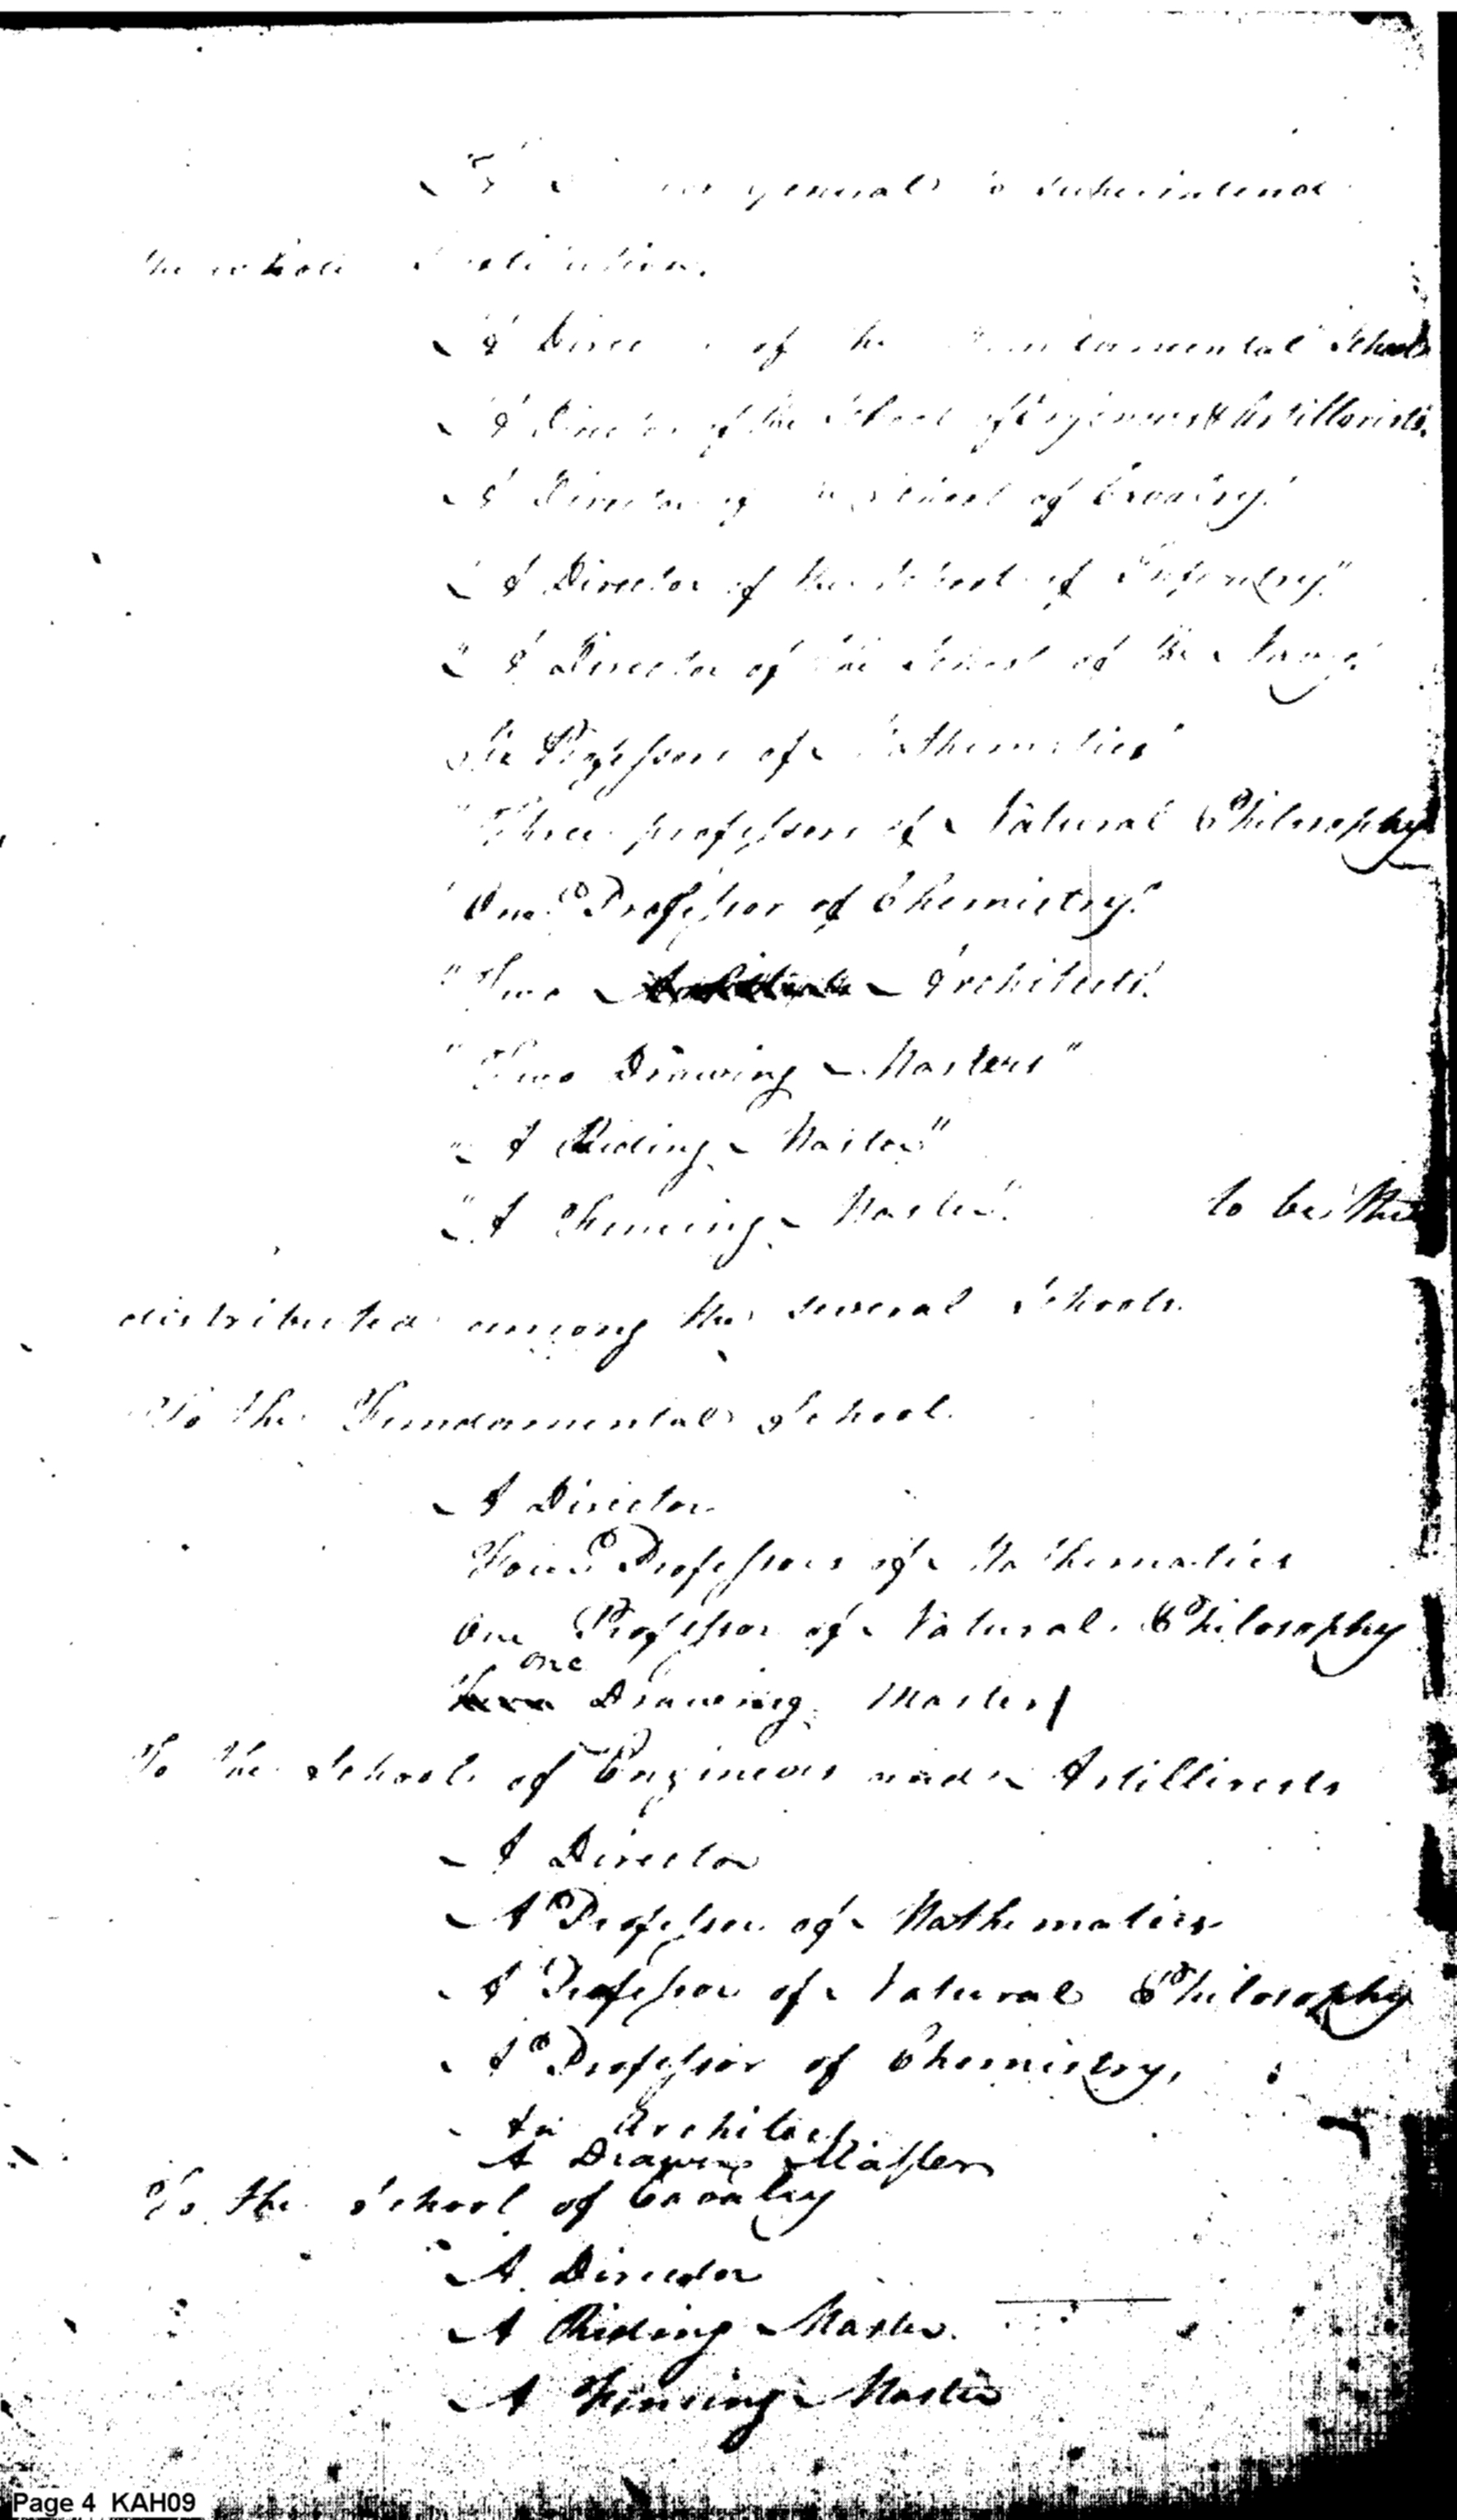 general to superintend
the whole Institution.
"A Director of the Fundamental School
"A Director of the School of Engineers & Artillerists."
"A Director of the School of Cavalry."
"A Director of the School of Infantry"
"A Director of the School of the Navy."
Six Professors of Mathematics"
"Three professors of Natural Philosophy
"One Professor of Chemistry."
"Two Architects."
"Two Drawing Masters"
"A Riding Master"
"A Fencing Master." to be thus
distributed among the several Schools.
To the Fundamental School.
A Director
Four Professors of Mathematics
One Professor of Natural Philosophy
one
Two Drawing Master
To the School of Engineers and Artillerists
A Director
A Professor of Mathematics
A Professor of Natural Philosophy
A Professor of Chemistry,
An Architect
A Drawing Master
To the School of Cavalry
A Director
A Riding Master.
A Fencing Master
Page 4 KAH09